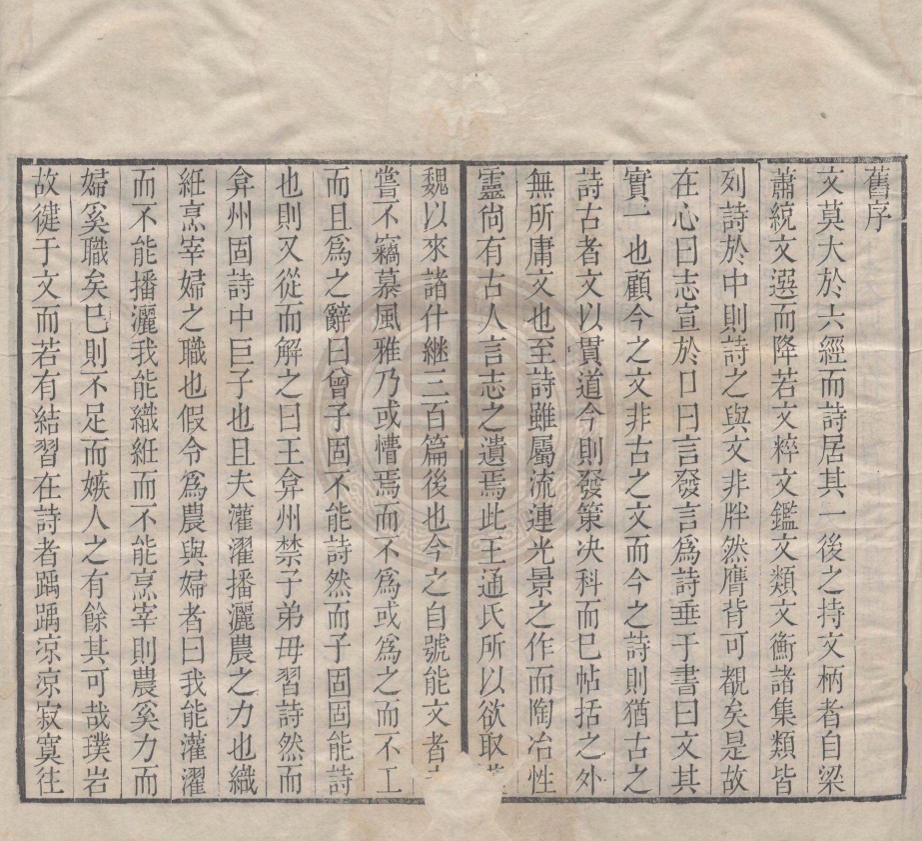 舊序
文莫大於六經而詩居其一後之持文柄者自梁
蕭統文選而降若文粹文鑑文類文衡諸集類皆
列詩於中則詩之與文非牉然膺背可覩矣是故
在心曰志宣於口曰言發言爲詩垂于書曰文其
實一也顧今之文非古之文而今之詩則猶古之
詩古者文以貫道今則發策决科而巳帖括之外
無所庸文也至詩雖屬流連光景之作而陶冶性
靈尙有古人言志之遺焉此王通氏所以欲取
魏以來諸什継三百篇後也今之自號能文者
嘗不竊慕風雅乃或懵焉而不爲或爲之而不工
而且爲之辭曰曾子固不能詩然而子固固能詩
也則又從而解之曰王弇州禁子弟毋習詩然而
弇州固詩中巨子也且夫灌濯播灑農之力也織
紝烹宰婦之職也假令爲農與婦者曰我能灌濯
而不能播灑我能織紝而不能烹宰則農奚力而
婦奚職矣巳則不足而嫉人之有餘其可哉璞岩
故徤于文而若有結習在詩者踽踽凉凉寂寞往